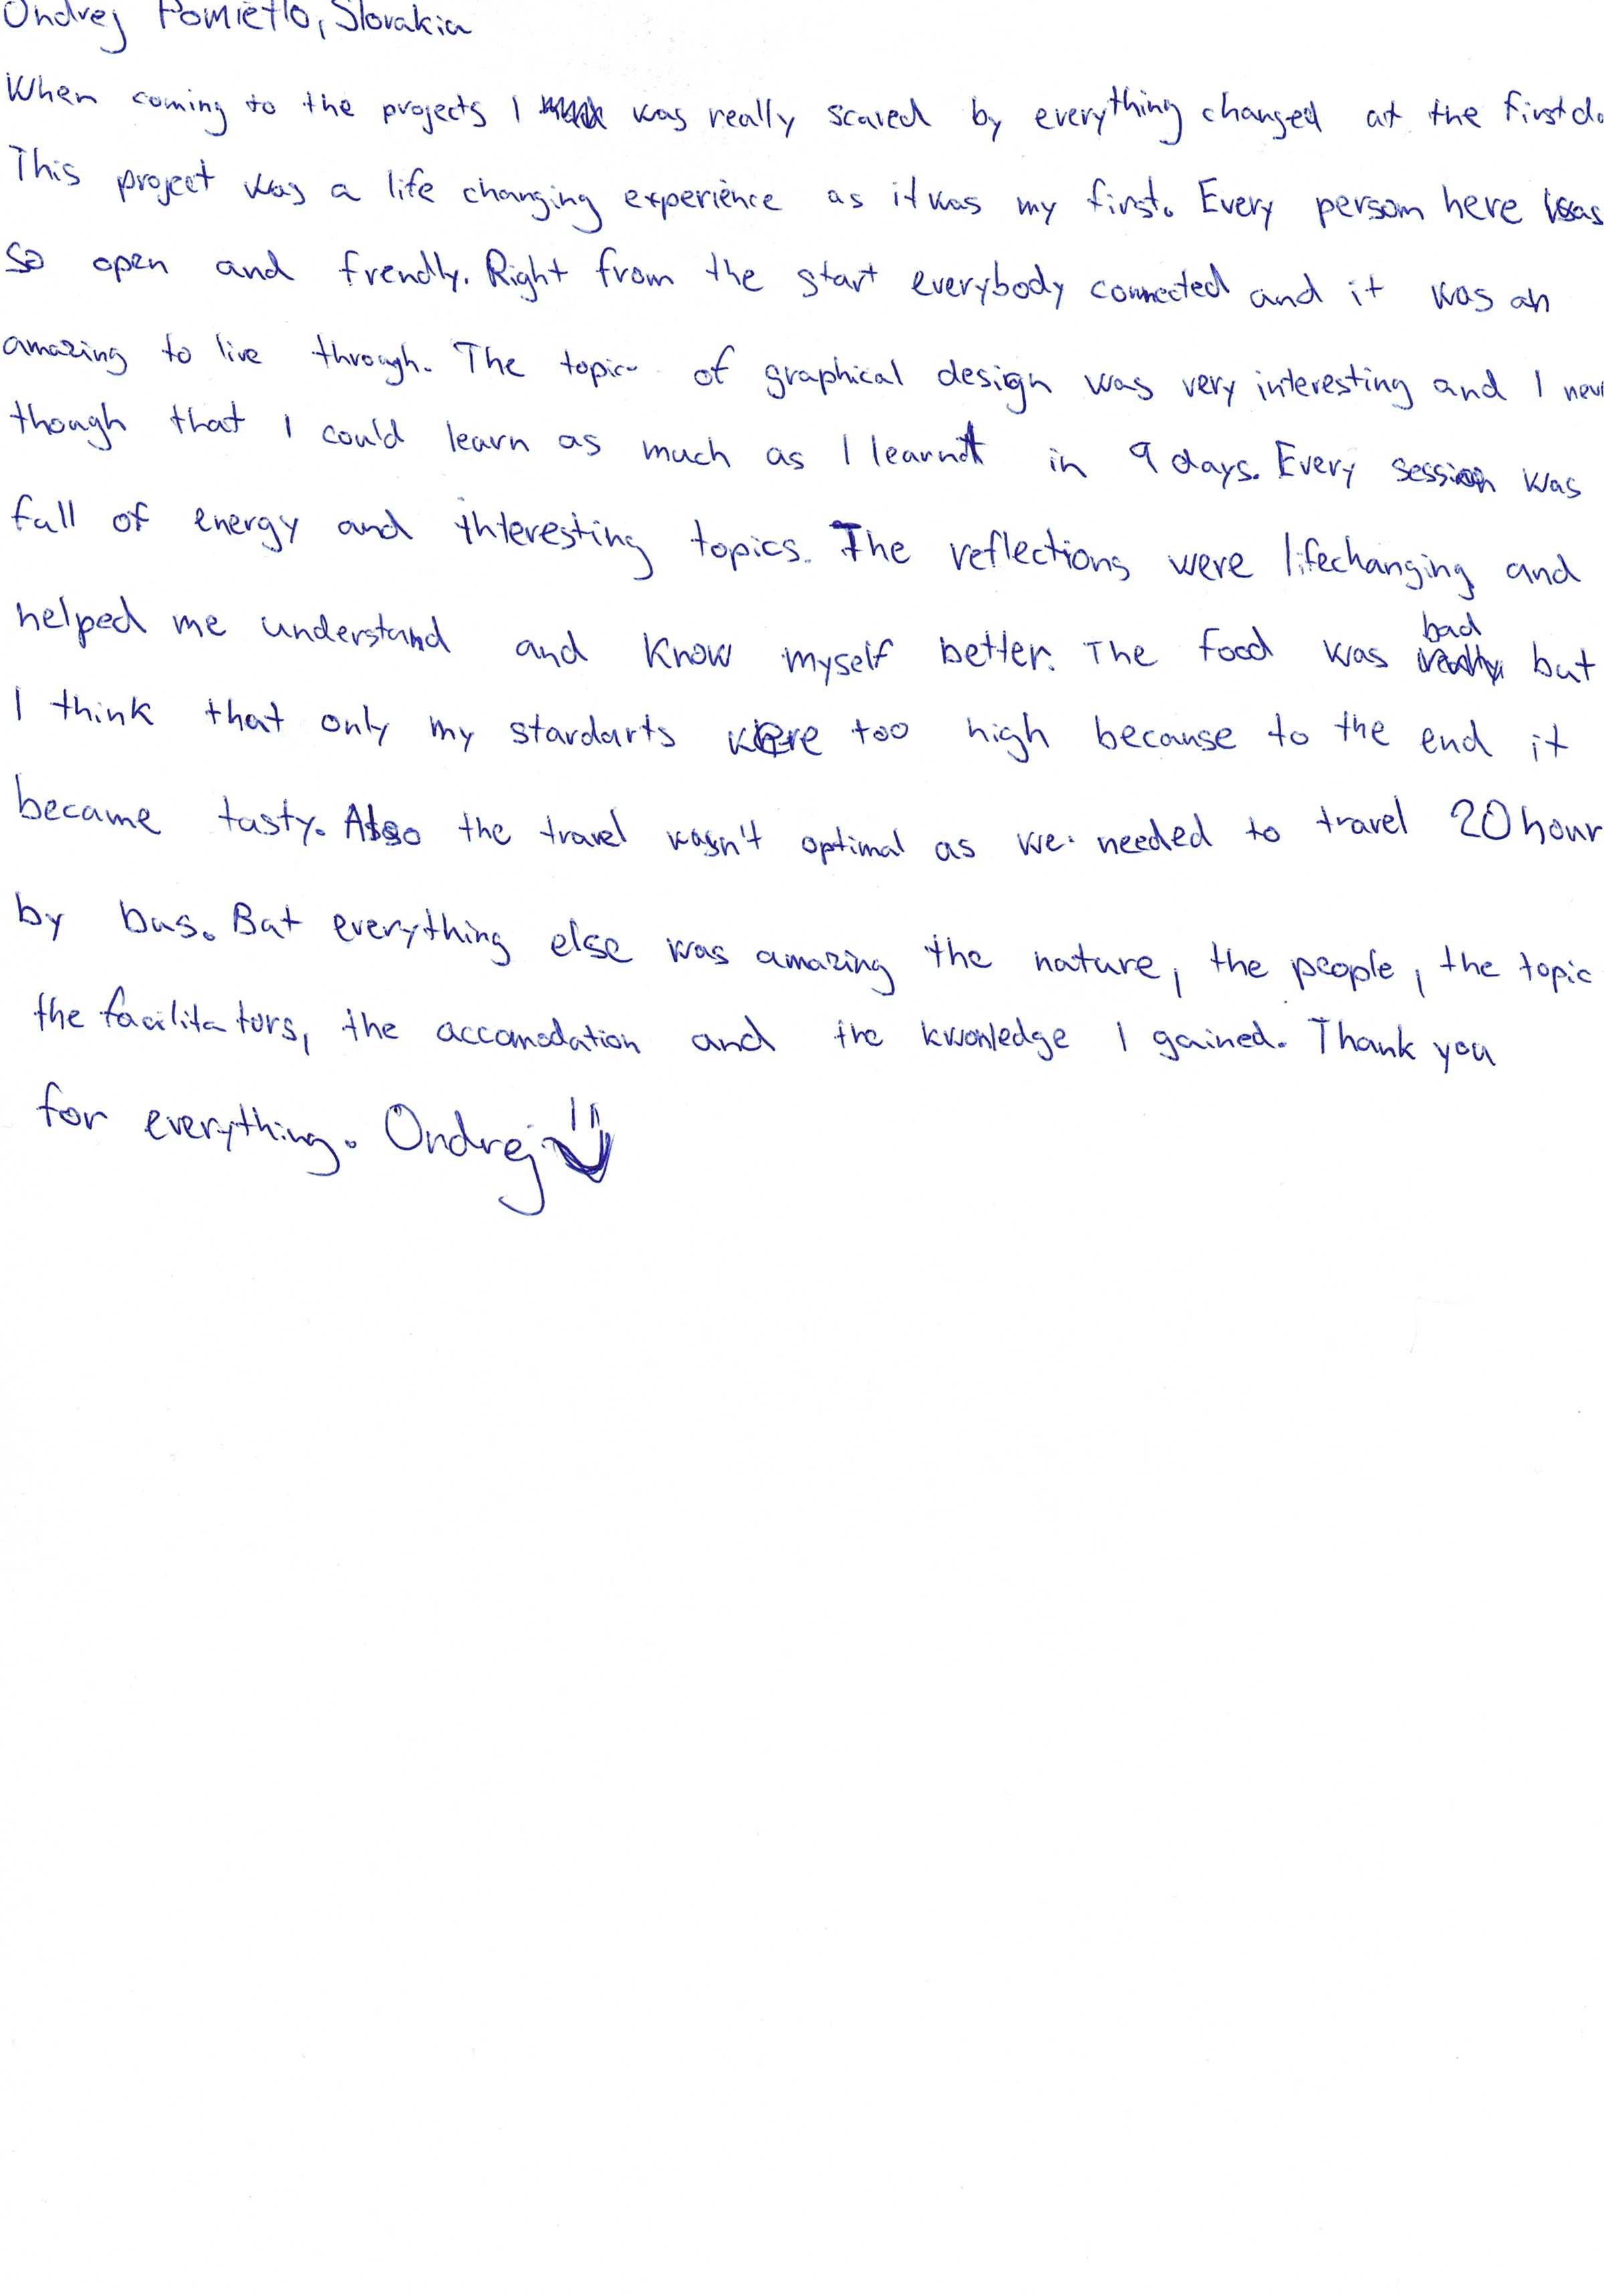 Ondrej Pomietlo, Slovakia
When coming to the projects I was really scared by everything changed at the first
This project was a life changing experience as it was my first. Every person here was
so open and frendly. Right from the start everybody connected and it was an
amazing to live through. The topic of graphical design was very interesting and I
though that I could learn as much as I learnt in 9 days. Every session was
full of energy and interesting topics. The reflections were lifechanging and
helped me understand and know myself better. The food was bad but
I think that only my stardarts were too high because to the end it
became tasty. Also the travel wasn't optimal as we needed to travel 20 hour
by bus. But everything else was amazing the nature, the people, the topic
the facilitators, the accomodation and the kwonledge I gained. Thank you
for everything. Ondrej